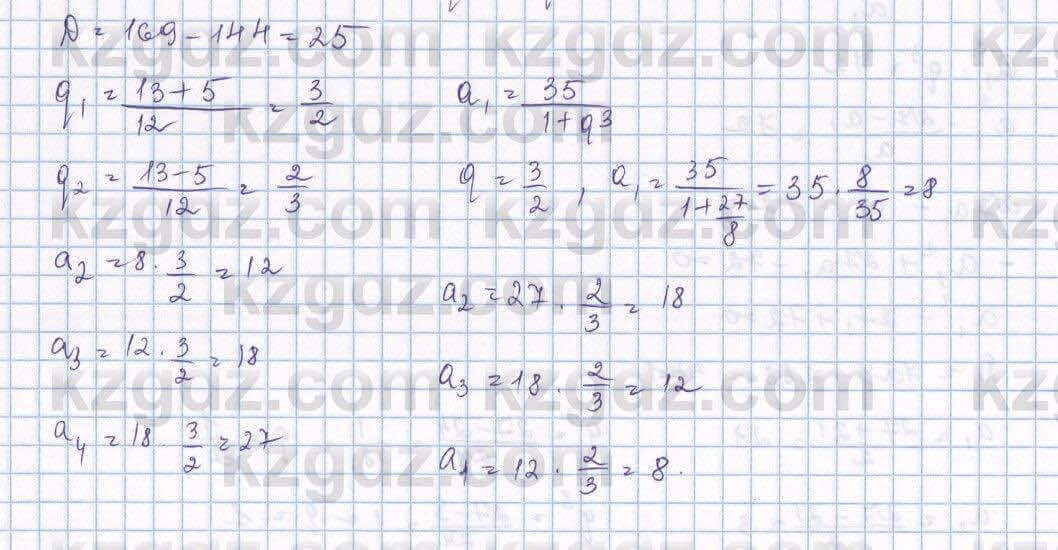 D = 169 - 144 = 25
q₁ = (13 + 5)/12 = 3/2
a₁ = 35/(1 + q³)
q₂ = (13 - 5)/12 = 2/3
q = 3/2 , a₁ = 35/(1 + 27/8) = 35 · 8/35 = 8
a₂ = 8 · 3/2 = 12
a₂ = 27 · 2/3 = 18
a₃ = 12 · 3/2 = 18
a₃ = 18 · 2/3 = 12
a₄ = 18 · 3/2 = 27
a₁ = 12 · 2/3 = 8.
kzgdz.com kzgdz.com kz
kzgdz.com kzgdz
kzgdz.com kzgdz.com kz
kzgdz.com kzgdz
kzgdz.com kzgdz.com kz
kzgdz.com kzgdz
kzgdz.com kzgdz.com kz